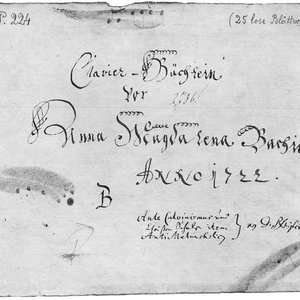 P. 224
(25 lose Blätter
Clavier-Büchlein
vor
Anna Magdalena Bachin
ANNO 1722.
B
Ante Calvinismus und
Christen Schule item
Anti Melancholicus